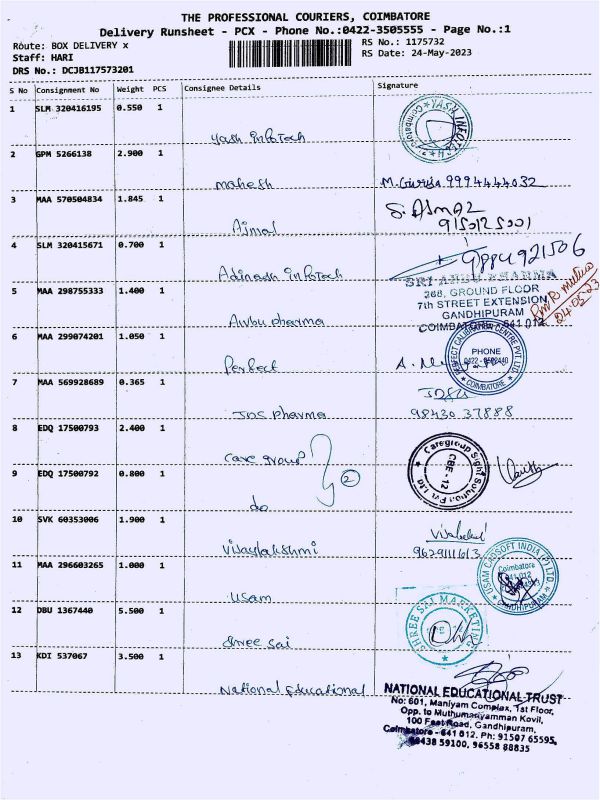 THE PROFESSIONAL COURIERS, COIMBATORE
Delivery Runsheet - PCX - Phone No.:0422-3505555 - Page No.:1
Route: BOX DELIVERY x
RS No.: 1175732
Staff: HARI
RS Date: 24-May-2023
DRS No.: DCJB117573201
S No Consignment No Weight PCS Consignee Details Signature
1 SLM 320416195 0.550 1
Yash infotech
YASH INFOTECH
Coimbatore
2 GPM 5266138 2.900 1
mahesh
9994444032
3 MAA 570504834 1.845 1
Ajmal
S. AJMAL
4 SLM 320415671 0.700 1
Adinash infotech
SRI ANBU PHARMA
268, GROUND FLOOR
7th STREET EXTENSION
GANDHIPURAM
COIMBATORE - 641 012
24.05.23
5 MAA 298755333 1.400 1
Anbu pharma
6 MAA 299074201 1.050 1
Perfect
PERFECT CALIBRATION CENTRE PVT LTD
PHONE
COIMBATORE
7 MAA 569928689 0.365 1
JDS pharma
98430 37888
8 EDQ 17500793 2.400 1
care group
2
Caregroup Sight Solution Pvt. Ltd
CBE - 12
9 EDQ 17500792 0.800 1
do
10 SVK 60353006 1.900 1
Vijaylakshmi
9629111613
11 MAA 296603265 1.000 1
USam
USAM CADSOFT INDIA (P) LTD.
Coimbatore
641 012
GANDHIPURAM
12 DBU 1367440 5.500 1
Shree Sai
SHREE SAI MARKETING
13 KDI 537067 3.500 1
National Educational
NATIONAL EDUCATIONAL TRUST
No: 601, Maniyam Complex, 1st Floor,
Opp. to Muthumariyamman Kovil,
100 Feet Road, Gandhipuram,
Coimbatore - 641 012. Ph: 91507 65595,
98438 59100, 96558 88835